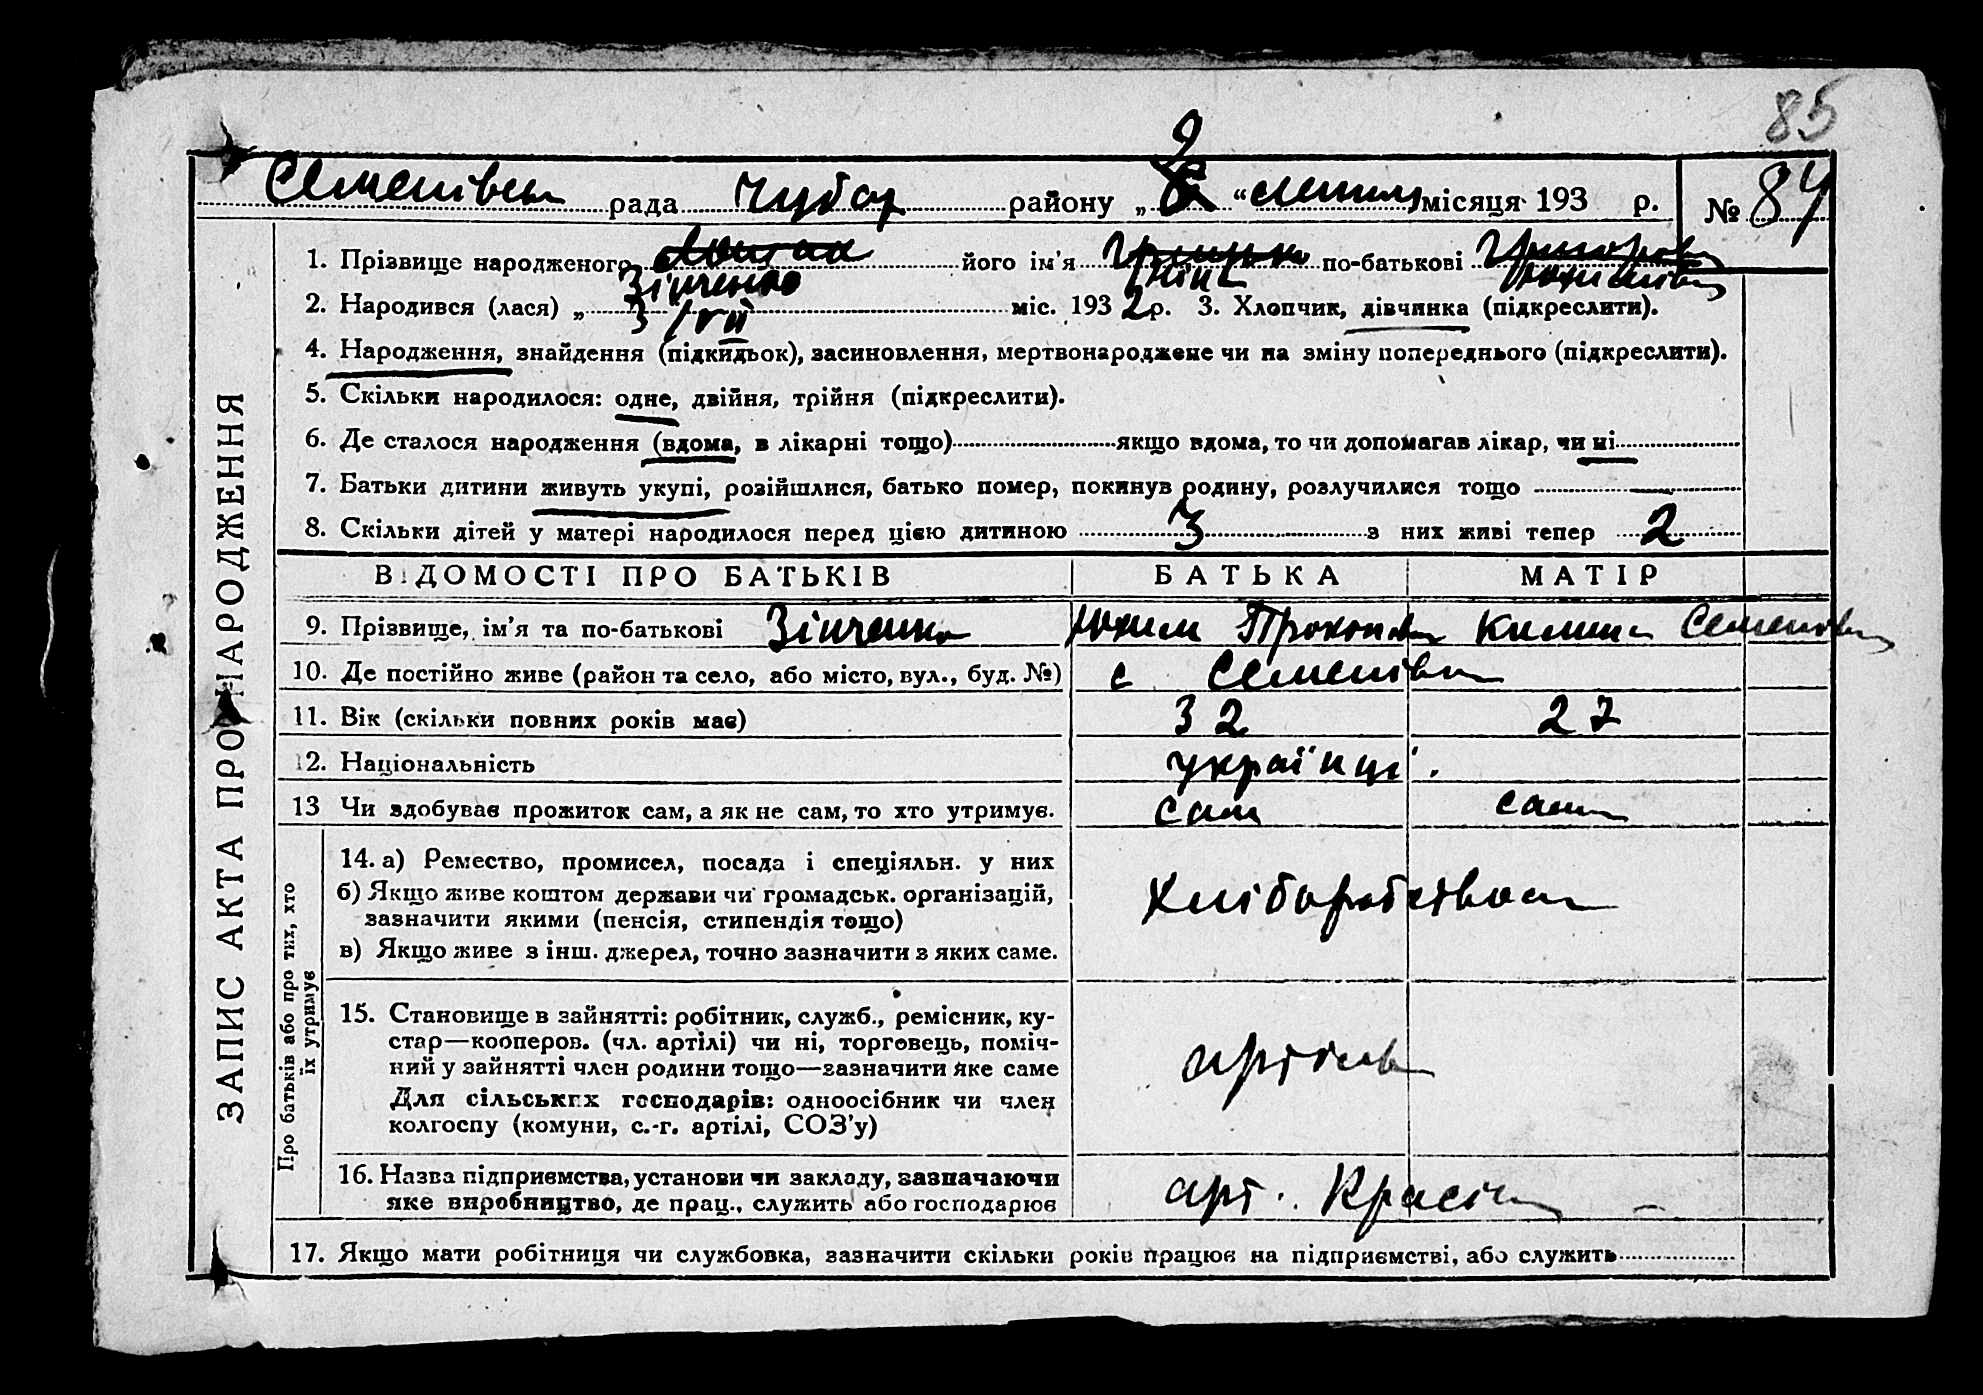 85
ЗАПИС АКТА ПРО НАРОДЖЕННЯ
Семенівська рада Чубар району „ 9 “ липня місяця 193 р. № 84
1. Прізвище народженого Зінченко його ім'я Ніна по-батькові Юхимівна
2. Народився (лася) „ 3/VII міс. 1932 р. 3. Хлопчик, дівчинка (підкреслити).
4. Народження, знайдення (підкидьок), засиновлення, мертвонароджене чи на зміну попереднього (підкреслити).
5. Скільки народилося: одне, двійня, трійня (підкреслити).
6. Де сталося народження (вдома, в лікарні тощо) якщо вдома, то чи допомагав лікар, чи ні
7. Батьки дитини живуть укупі, розійшлися, батько помер, покинув родину, розлучилися тощо —
8. Скільки дітей у матері народилося перед цією дитиною 3 з них живі тепер 2
ВІДОМОСТІ ПРО БАТЬКІВ БАТЬКА МАТІР
9. Прізвище, ім'я та по-батькові Зінченко Юхим Прокопов Килина Семеновна
10. Де постійно живе (район та село, або місто, вул., буд. №) с Семенівка
11. Вік (скільки повних років має) 32 27
12. Національність українці.
13 Чи здобуває прожиток сам, а як не сам, то хто утримує. сам сама
Про батьків або про тих, хто
їх утримує
14. а) Ремество, промисел, посада і спеціяльн. у них
б) Якщо живе коштом держави чи громадськ. організацій,
зазначити якими (пенсія, стипендія тощо)
в) Якщо живе з інш. джерел, точно зазначити з яких саме.
Хліборобством
15. Становище в зайнятті: робітник, служб., ремісник, ку-
стар—кооперов. (чл. артілі) чи ні, торговець, поміч-
ний у зайнятті член родини тощо—зазначити яке саме
Для сільських господарів: одноосібник чи член
колгоспу (комуни, с.-г. артілі, СОЗ'у)
артіль
16. Назва підприємства, установи чи закладу, зазначаючи
яке виробництво, де прац., служить або господарює
арт. —
17. Якщо мати робітниця чи службовка, зазначити скільки років працює на підприємстві, або служить